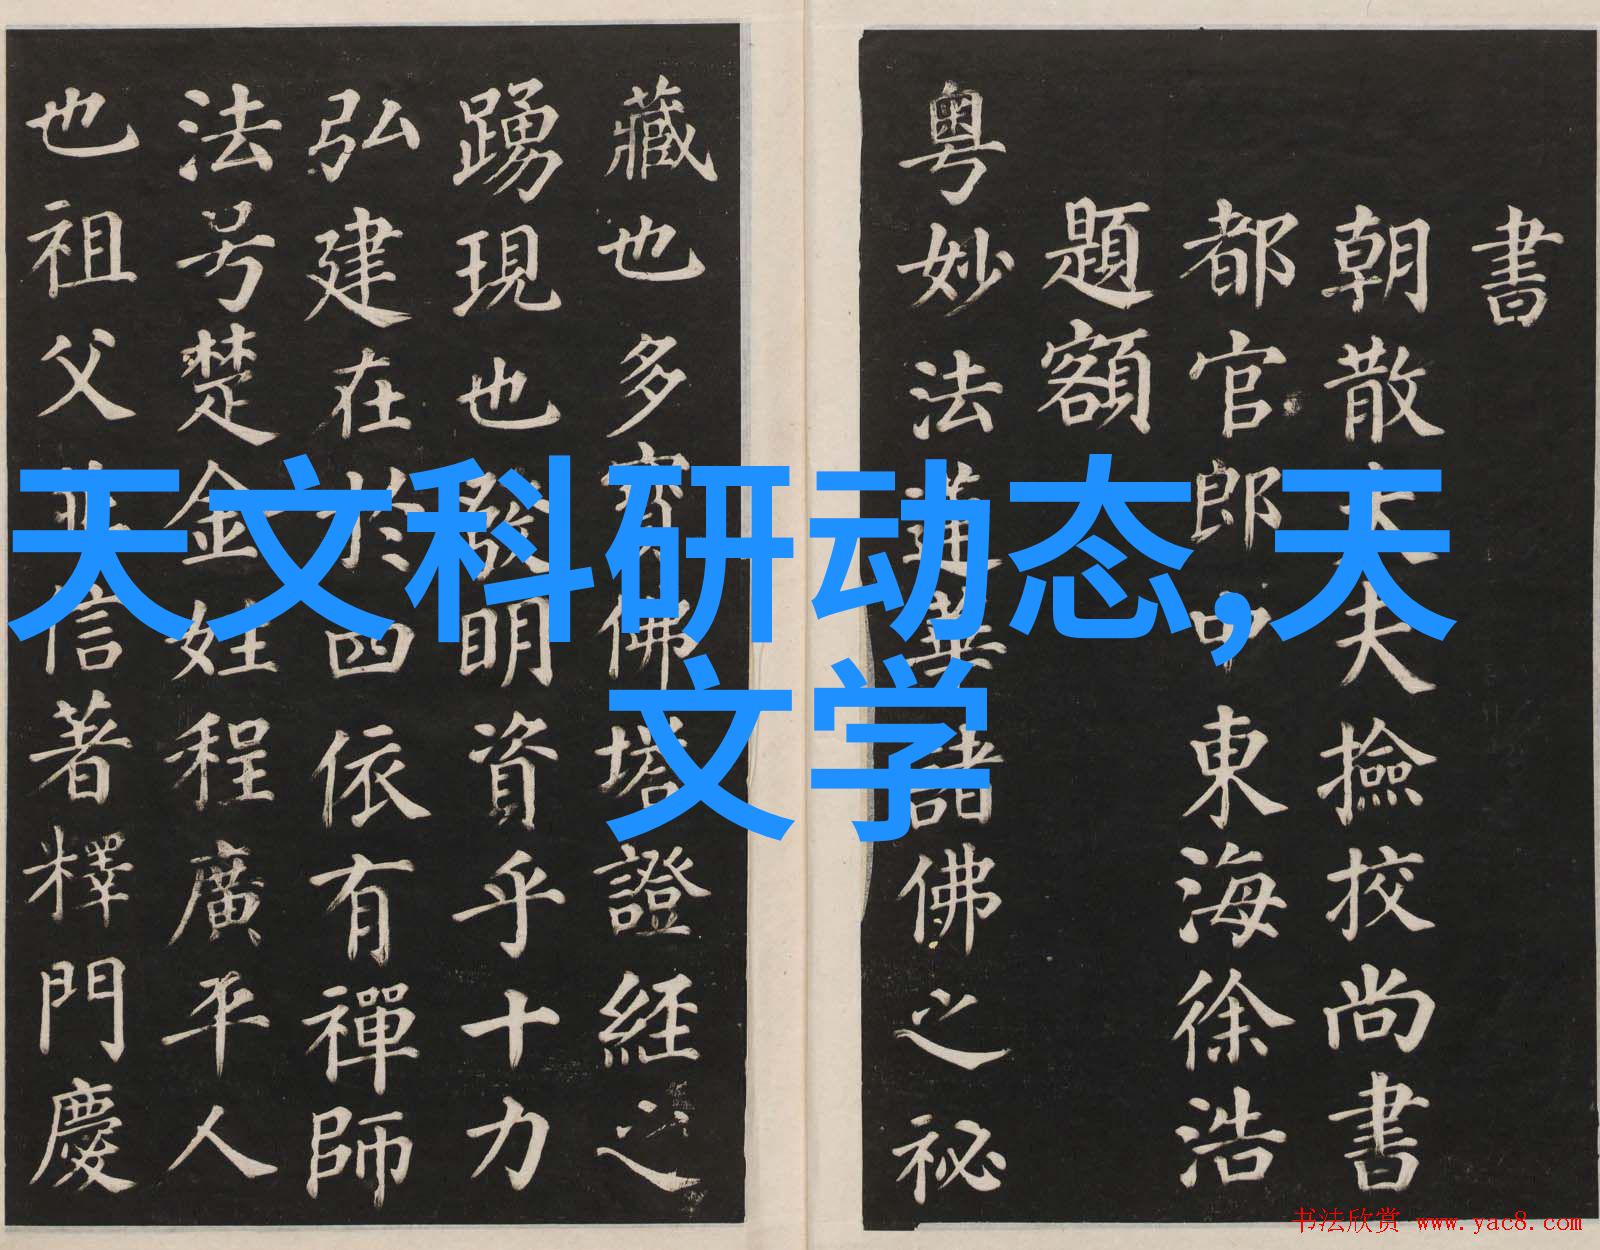 書
朝散大夫撿校尚書
都官郎中東海徐浩
題額
粤妙法蓮華諸佛之祕
藏也多寶佛塔證經之
踴現也發明資乎十力
弘建在於四依有禪師
法号楚金姓程廣平人
也祖父並信著釋門慶
天文科研动态,天
文学
书法欣赏 www.yac8.com